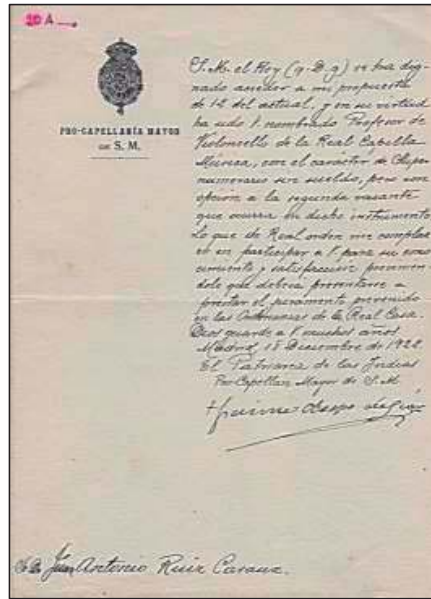 20 A
PRO-CAPELLANÍA MAYOR
DE S. M.
S. M. el Rey (q. D. g) se ha dig-
nado acceder a mi propuesta
de 12 del actual, y en su virtud
ha sido V. nombrado Profesor de
Violoncello de la Real Capilla
Música, con el carácter de Super-
numerario sin sueldo, pero con
opcion a la segunda vacante
que ocurra en dicho instrumento.
Lo que de Real orden me complaz-
co en participar a V. para su cono-
cimiento y satisfaccion previnien-
dole que deberá presentarse a
prestar el juramento prevenido
en las Ordenanzas de la Real Casa.
Dios guarde a V. muchos años
Madrid, 18 Diciembre de 1922
El Patriarca de las Indias
Pro-Capellan Mayor de S. M.
+ Jaime Obispo de
Juan Antonio Ruiz Casaux.